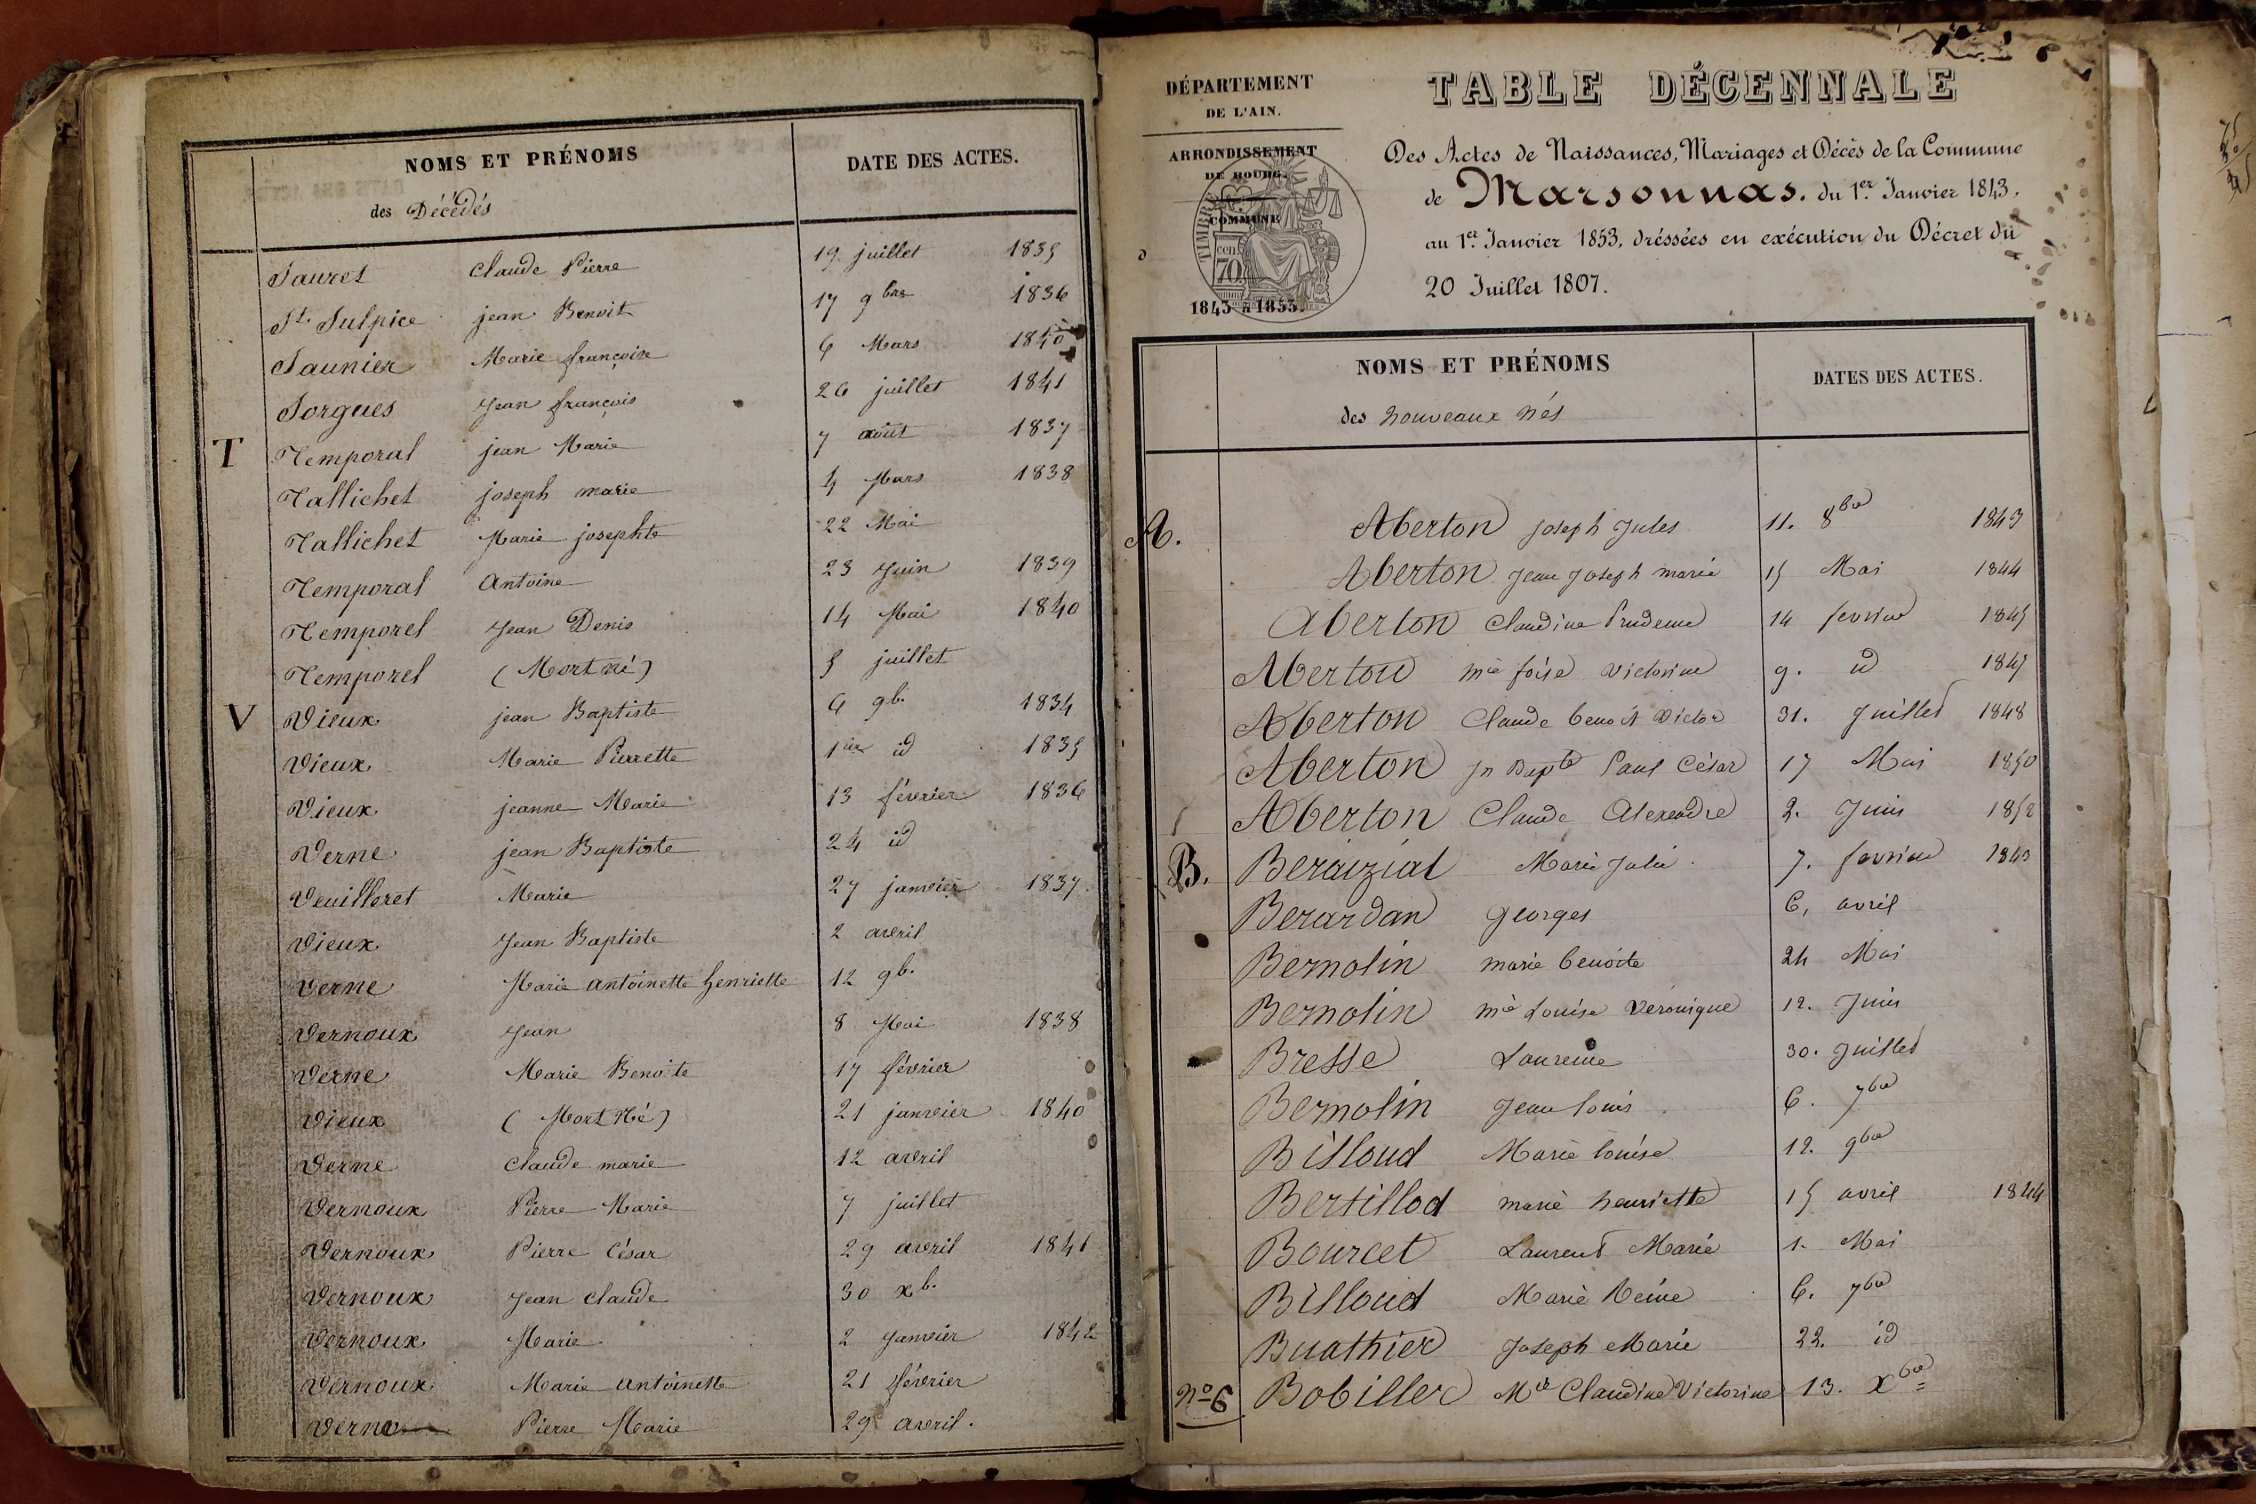 NOMS ET PRÉNOMS
DATE DES ACTES.
des Décédés
Sauret Claude Pierre 19 juillet 1835
St. Sulpice jean Benoit 17 9bre 1836
Saunier Marie françoise 6 Mars 1840
Sorgues Jean françois 26 juillet 1841
T Temporal jean Marie 7 août 1837
Tallichet joseph marie 4 Mars 1838
Tallichet Marie josephte 22 Mai
Temporal Antoine 23 Juin 1839
Temporel Jean Denis 14 Mai 1840
Temporel (Mort né) 5 juillet
V Vieux jean Baptiste 6 9b. 1834
Vieux Marie Pierrette 1er id 1835
Vieux jeanne Marie 13 février 1836
Verne jean Baptiste 24 id
Veuilloret Marie 27 janvier 1837
Vieux Jean Baptiste 2 avril
Verne Marie antoinette henriette 12 9b.
Vernoux Jean 8 Mai 1838
Verne Marie Benoite 17 février
Vieux (Mort Né) 21 janvier 1840
Verne Claude marie 12 avril
Vernoux Pierre Marie 7 juillet
Vernoux Pierre César 29 avril 1841
Vernoux Jean claude 30 xb.
Vernoux Marie 2 Janvier 1842
Vernoux Marie antoinette 21 février
Verne Pierre Marie 29 avril.
DÉPARTEMENT
DE L'AIN.
ARRONDISSEMENT
DE BOURG.
COMMUNE
TIMBRE
cen
70
1843 à 1853.
TABLE DÉCENNALE
Des Actes de Naissances, Mariages et Décès de la Commune
de Marsonnas. du 1er Janvier 1843.
au 1er Janvier 1853, dréssées en exécution du Décret du
20 Juillet 1807.
NOMS ET PRÉNOMS
DATES DES ACTES.
des nouveaux nés
A. Aberton joseph Jules 11. 8bre 1843
Aberton Jean Joseph marie 15 Mai 1844
Aberton Claudine Prudence 14 fevrier 1845
Aberton mie foise victorine 9. id 1847
Aberton Claude benoit Victor 31. Juillet 1848
Aberton Jn Bapte Paul César 17 Mai 1850
Aberton Claude Alexandre 2. Juin 1852
B. Beraizial Marie Julie 7. fevrier 1843
Berardan georges 6, avril
Bernolin marie benoite 24 Mai
Bernolin mie Louise Véronique 12. Juin
Bresse Laurence 30. Juillet
Bernolin Jean louis 6. 7bre
Billoud Marie louise 12. 9bre
Bertillod marie henriette 15 avril 1844
Bourcet Laurent Marie 1. Mai
Billoud Marie Reine 6. 7bre
Buathier Joseph Marie 22. id
no 6 Bobiller Mie Claudine Victorine 13. Xbre